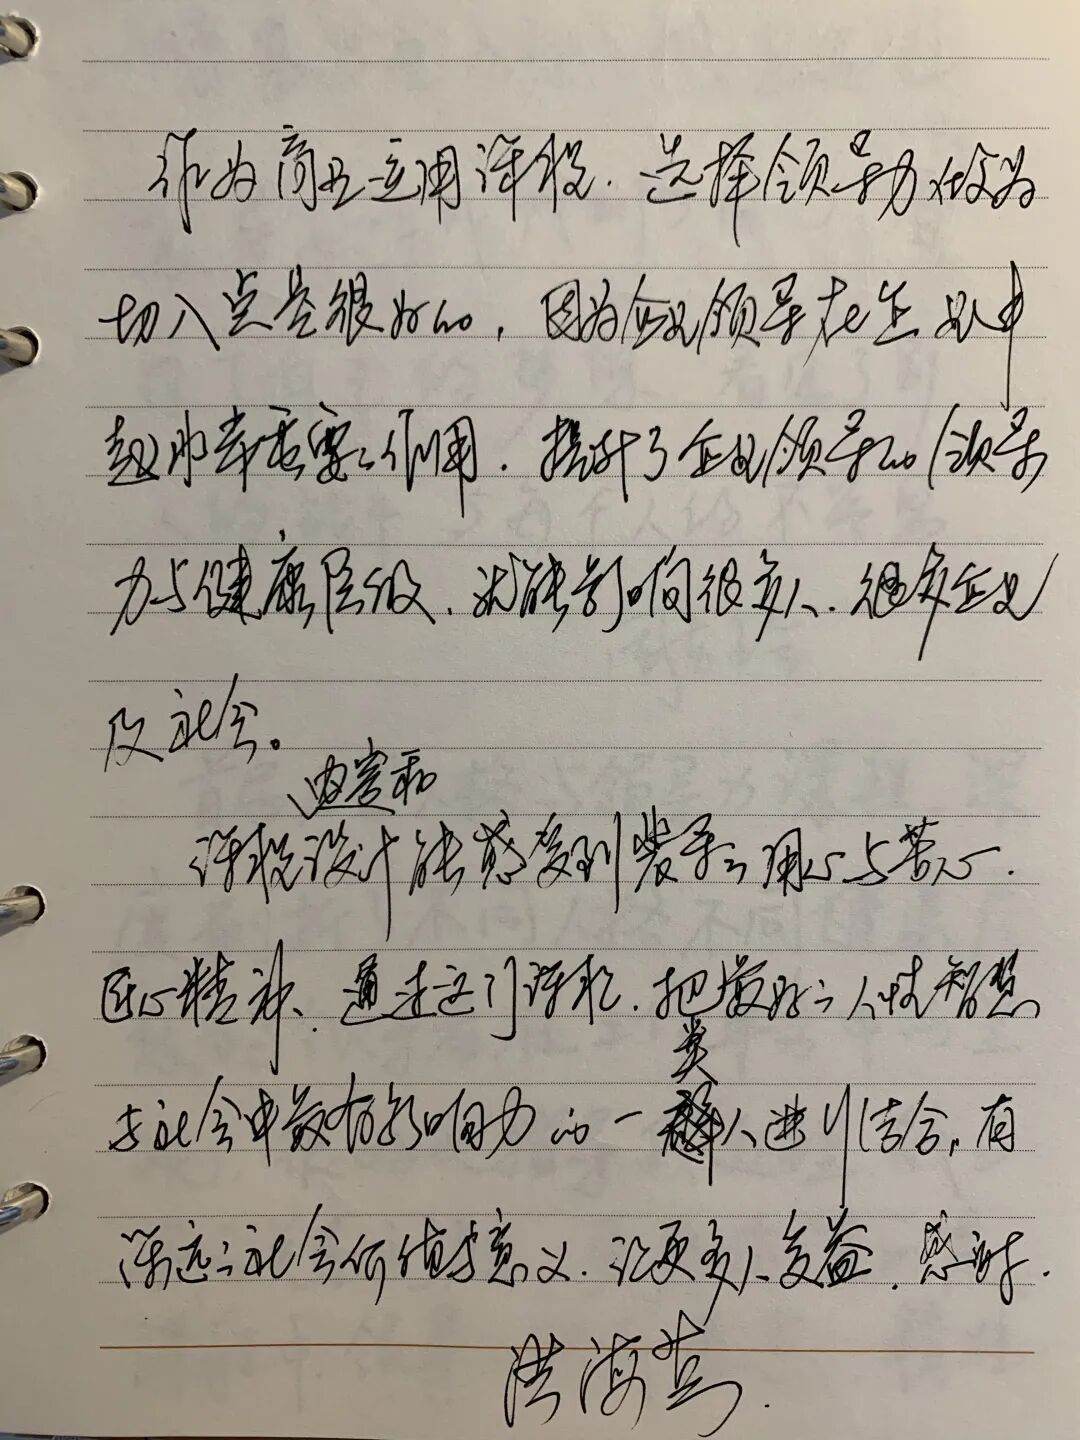 作为商业应用课程.选择领导力做为
切入点是很好的,因为企业领导在企业中
起非常重要之作用.提升了企业领导的领导
力与健康层级.就能影响很多人.很多企业
及社会。
内容和
课程设计能感受到裴导之用心与苦心.
匠心精神、通过这门课程.把最好之人性智慧
与社会中最有影响力的一类人进行结合,有
深远之社会价值与意义.让更多人受益.感谢.
洪海